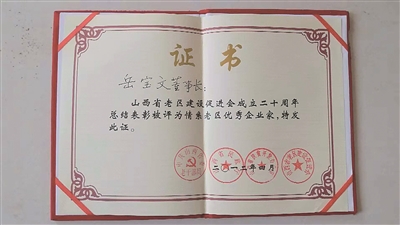 证书
岳宝文董事长：
山西省老区建设促进会成立二十周年
总结表彰被评为情系老区优秀企业家，特发
此证。
二〇一二年四月